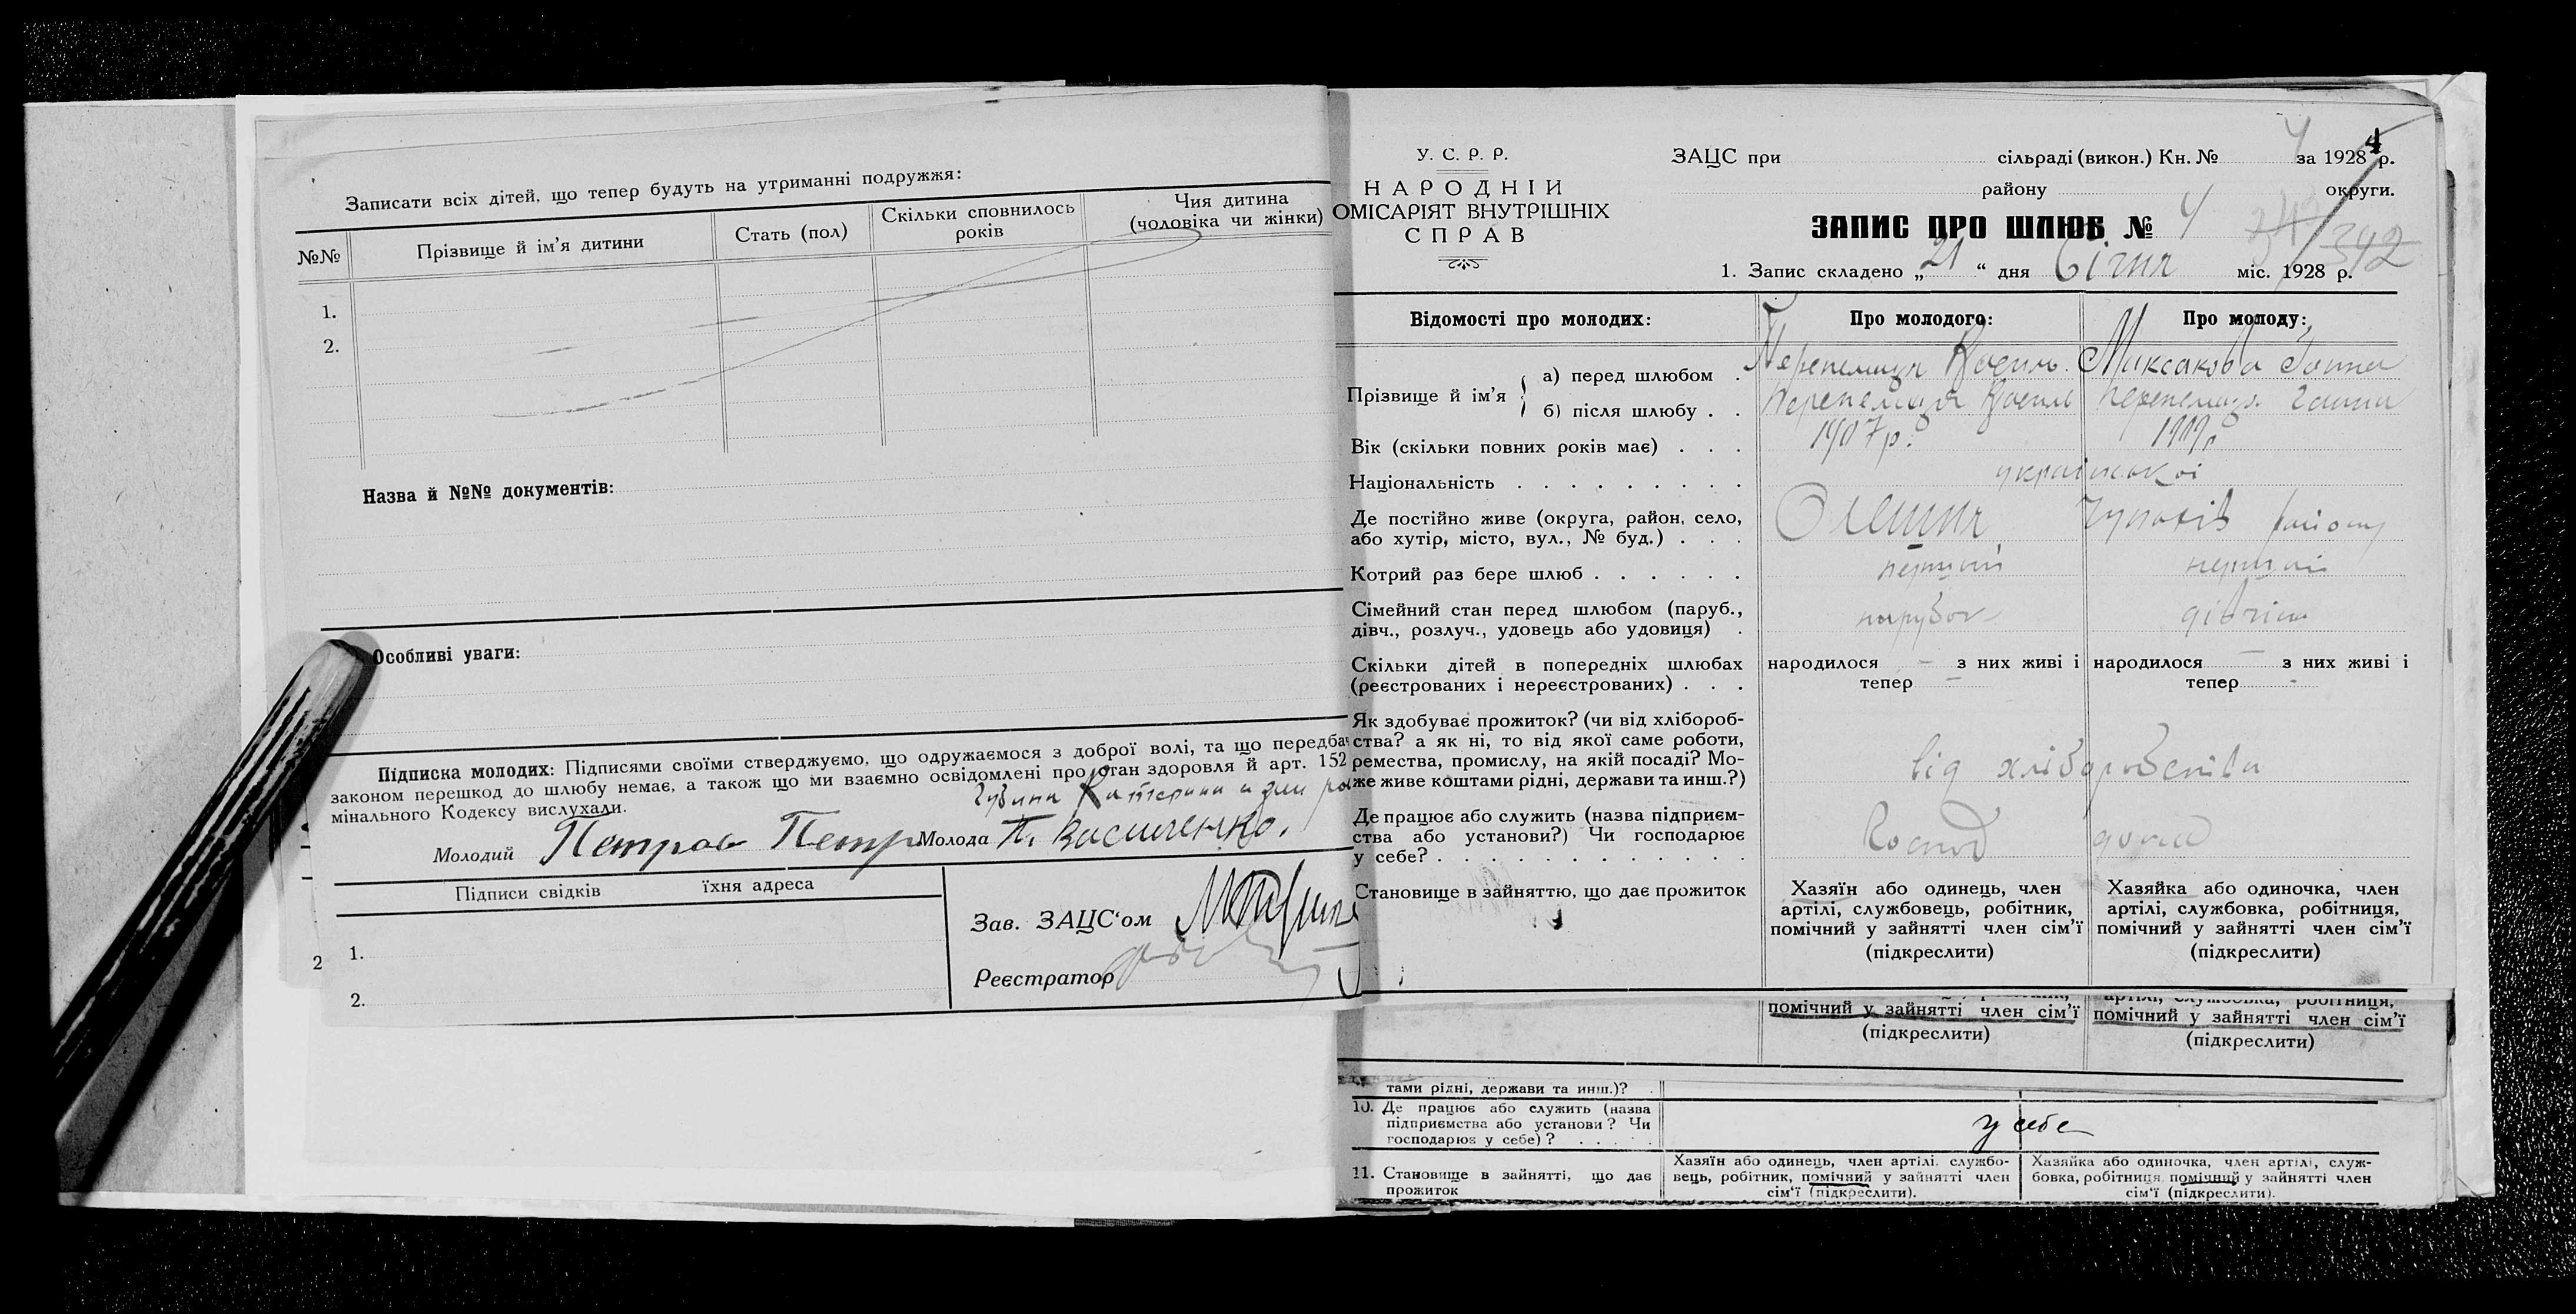 Записати всіх дітей, що тепер будуть на утриманні подружжя:
№№
Прізвище й ім'я дитини
Стать (пол)
Скільки сповнилось
років
Чия дитина
(чоловіка чи жінки)
1.
2.
Назва й №№ документів:
Особливі уваги:
Підписка молодих: Підписями своїми стверджуємо, що одружаємося з доброї волі, та що передба
законом перешкод до шлюбу немає, а також що ми взаємно освідомлені про стан здоровля й арт. 152
мінального Кодексу вислухали.
Катерина
Молодий Петров Петр Молода П. Василенко.
Підписи свідків їхня адреса
1.
2.
2
Зав. ЗАЦС'ом
Реєстратор
У. С. Р. Р.
НАРОДНІЙ
ОМІСАРІЯТ ВНУТРІШНІХ
СПРАВ
4
ЗАЦС при сільраді (викон.) Кн. № 4 за 1928 р.
району округи.
ЗАПИС ПРО ШЛЮБ № 4
342
1. Запис складено „ 21 “ дня Січня міс. 1928 р.
Відомості про молодих:
Про молодого:
Про молоду:
Прізвище й ім'я
а) перед шлюбом . Перепелиця Василь Максакова Ганна
б) після шлюбу . . Перепелиця Василь Перепелиця Ганна
Вік (скільки повних років має) . . . 1907р. 1909р
Національність . . . . . . . . . української
Де постійно живе (округа, район, село,
або хутір, місто, вул., № буд.) . . . району
Котрий раз бере шлюб . . . . . . перший перший
Сімейний стан перед шлюбом (паруб.,
дівч., розлуч., удовець або удовиця) . парубок дівчина
Скільки дітей в попередніх шлюбах
(реєстрованих і нереєстрованих) . . .
народилося — з них живі і
тепер —
народилося — з них живі і
тепер -
Як здобуває прожиток? (чи від хлібороб-
ства? а як ні, то від якої саме роботи,
ремества, промислу, на якій посаді? Мо-
же живе коштами рідні, держави та инш.?)
від хліборобства
Де працює або служить (назва підприєм-
ства або установи?) Чи господарює
у себе? . . . . . . . . . . . .
Становище в зайняттю, що дає прожиток
Хазяїн або одинець, член
артілі, службовець, робітник,
помічний у зайнятті член сім'ї
(підкреслити)
Хазяйка або одиночка, член
артілі, службовка, робітниця,
помічний у зайнятті член сім'ї
(підкреслити)
помічний у зайнятті член сім'ї
(підкреслити)
артілі, службовка, робітниця,
помічний у зайнятті член сім'ї
(підкреслити)
тами рідні, держави та инш.)?
10. Де працює або служить (назва
підприємства або установи? Чи
господарює у себе)? . . . . .
у себе
11. Становище в зайнятті, що дає
прожиток
Хазяїн або одинець, член артілі, службо-
вець, робітник, помічний у зайнятті член
сім'ї (підкреслити).
Хазяйка або одиночка, член артілі, служ-
бовка, робітниця, помічний у зайнятті член
сім'ї (підкреслити).